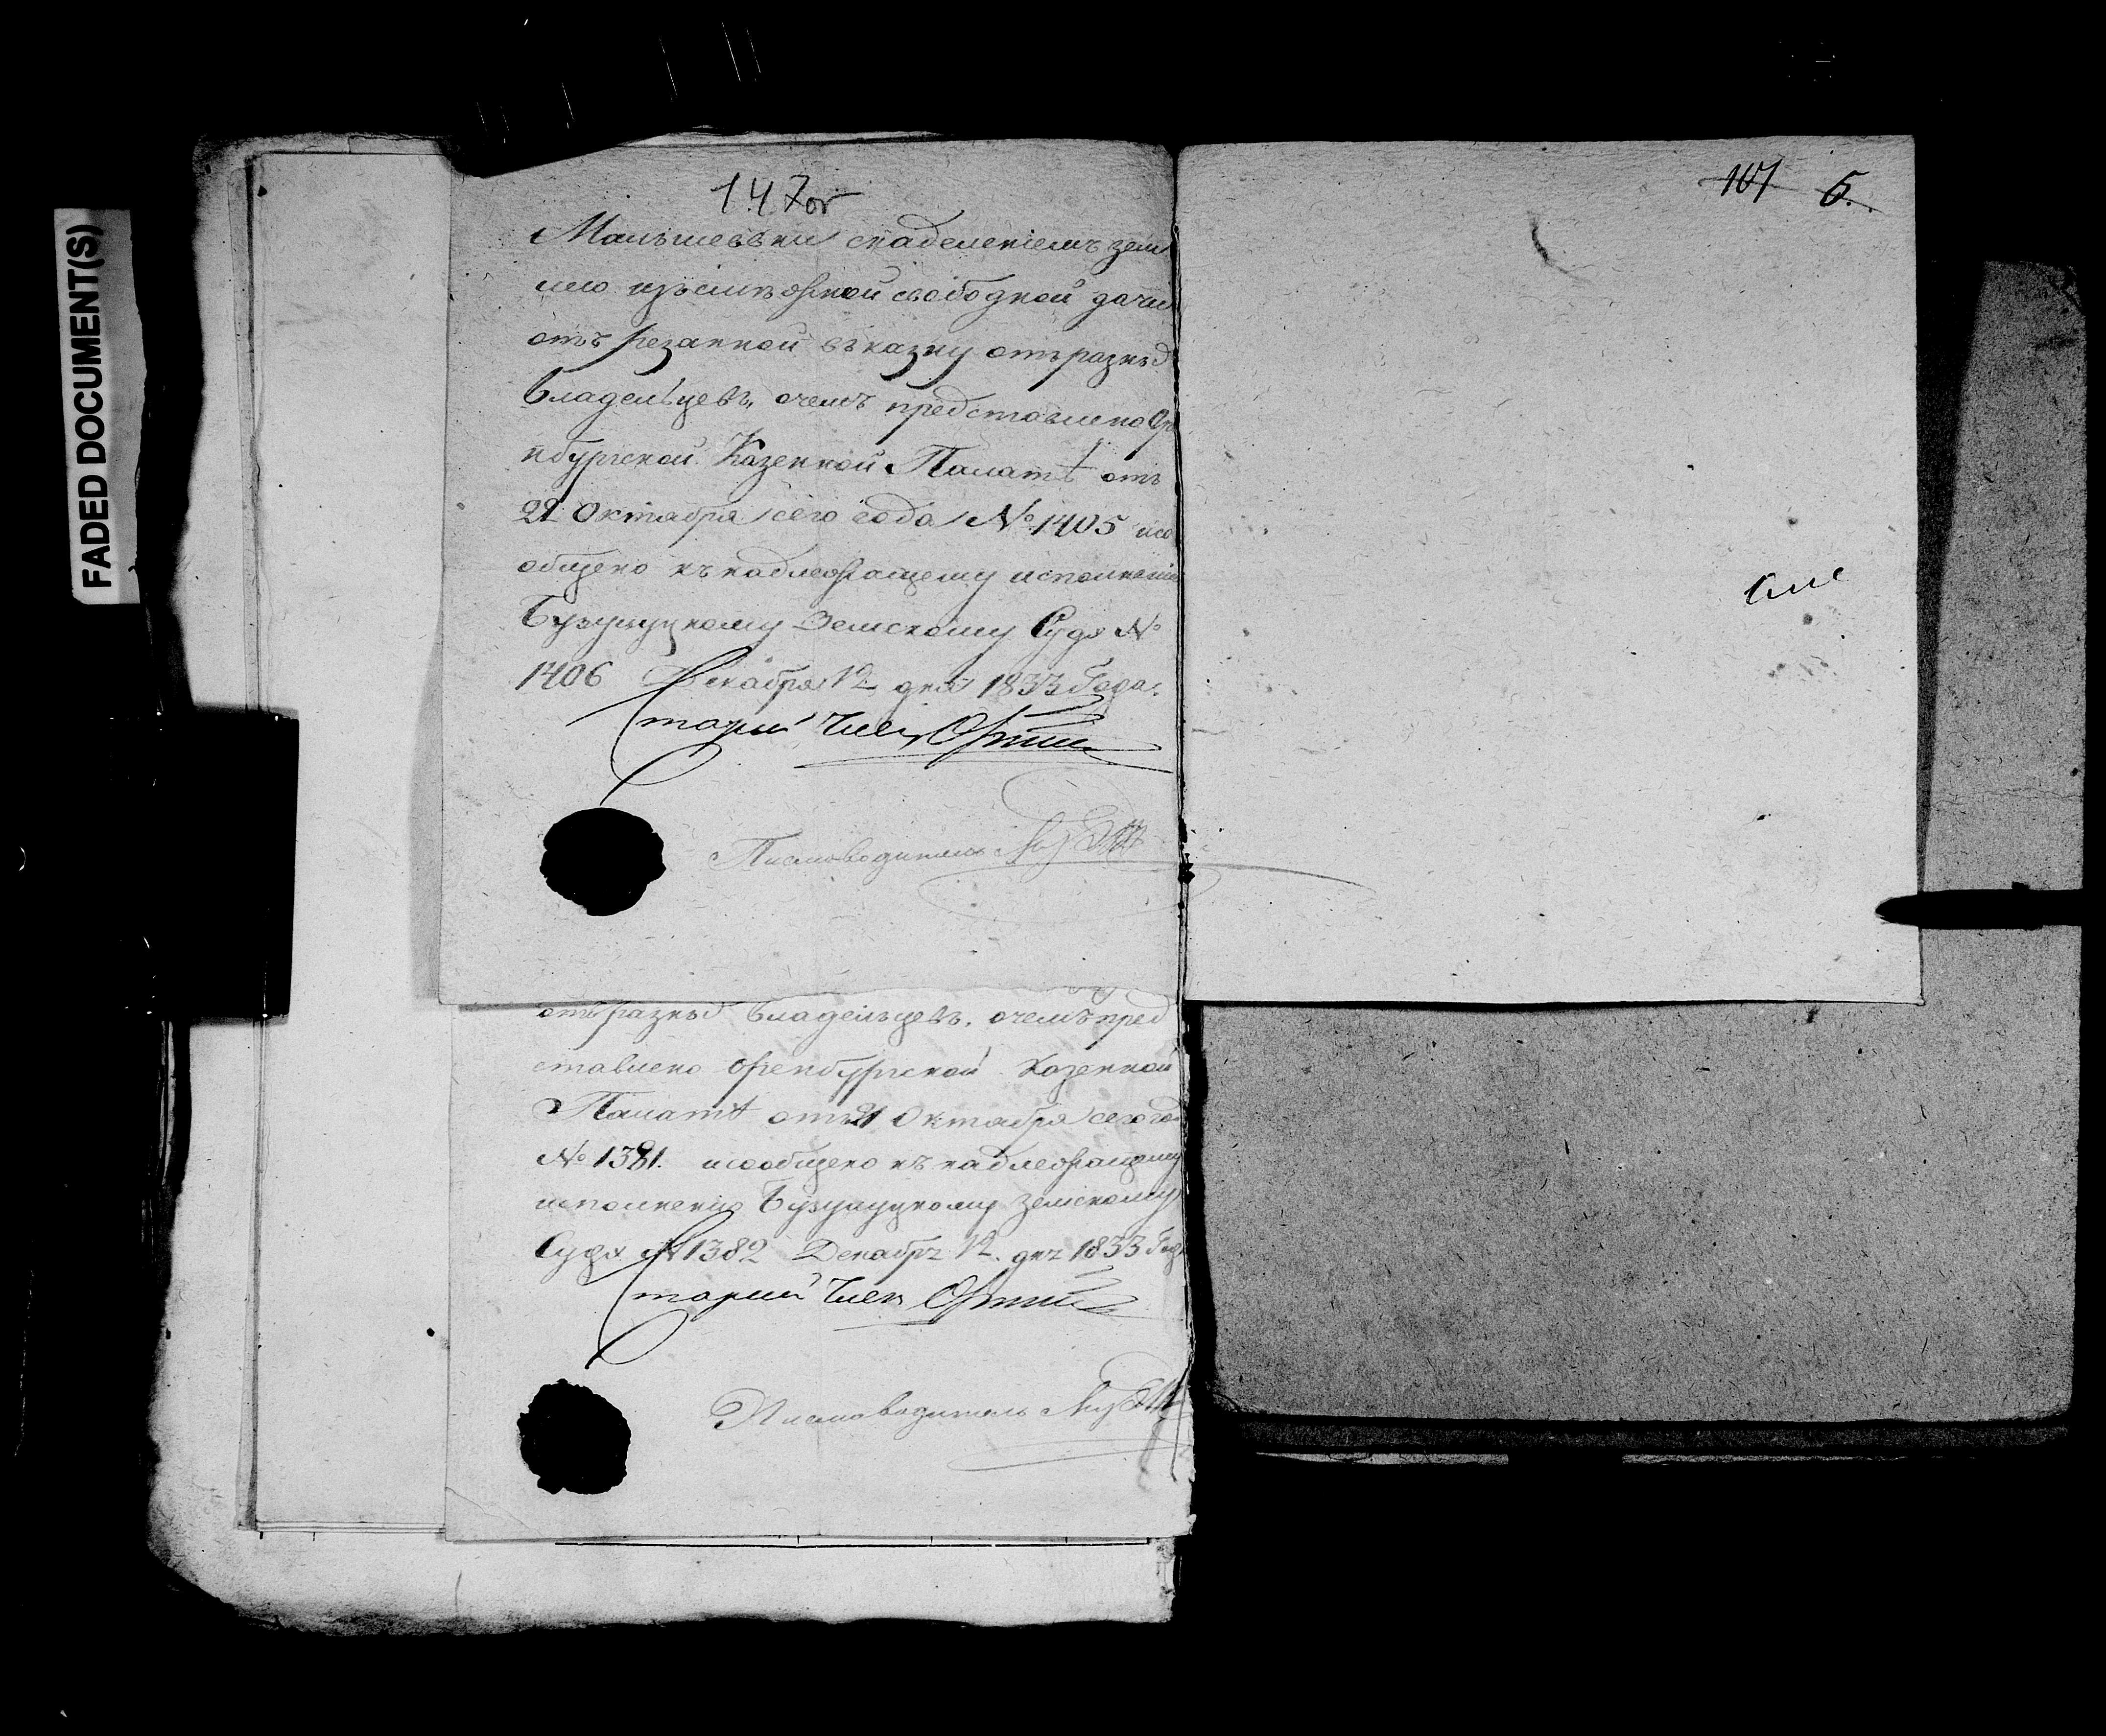 FADED DOCUMENT(S)
147об
Малышевки снаделениемъ зем
лею изъ смѣжной свободной дачи
отъ резанной въ казну отъ разныхъ
Владельцевъ, очемъ представлено Оре
нбургской Казенной Палатѣ отъ
21 Октября сего года № 1405 исо
общено къ надлежащему исполнению
Бузулуцкому Земскому Суду №
1406 Декабря 12 дня 1833 Года.
Старший Член
Письмоводитель
отъ разныхъ Владельцевъ, очемъ пред
ставлено Оренбургской Казенной
Палатѣ отъ 21 Октября сего год
№ 1381. исообщено къ надлежащему
исполнению Бузулуцкому Земскому
Суду № 1382 Декабря 12 дня 1833 Года
Старший Член
Письмоводитель
107 6.